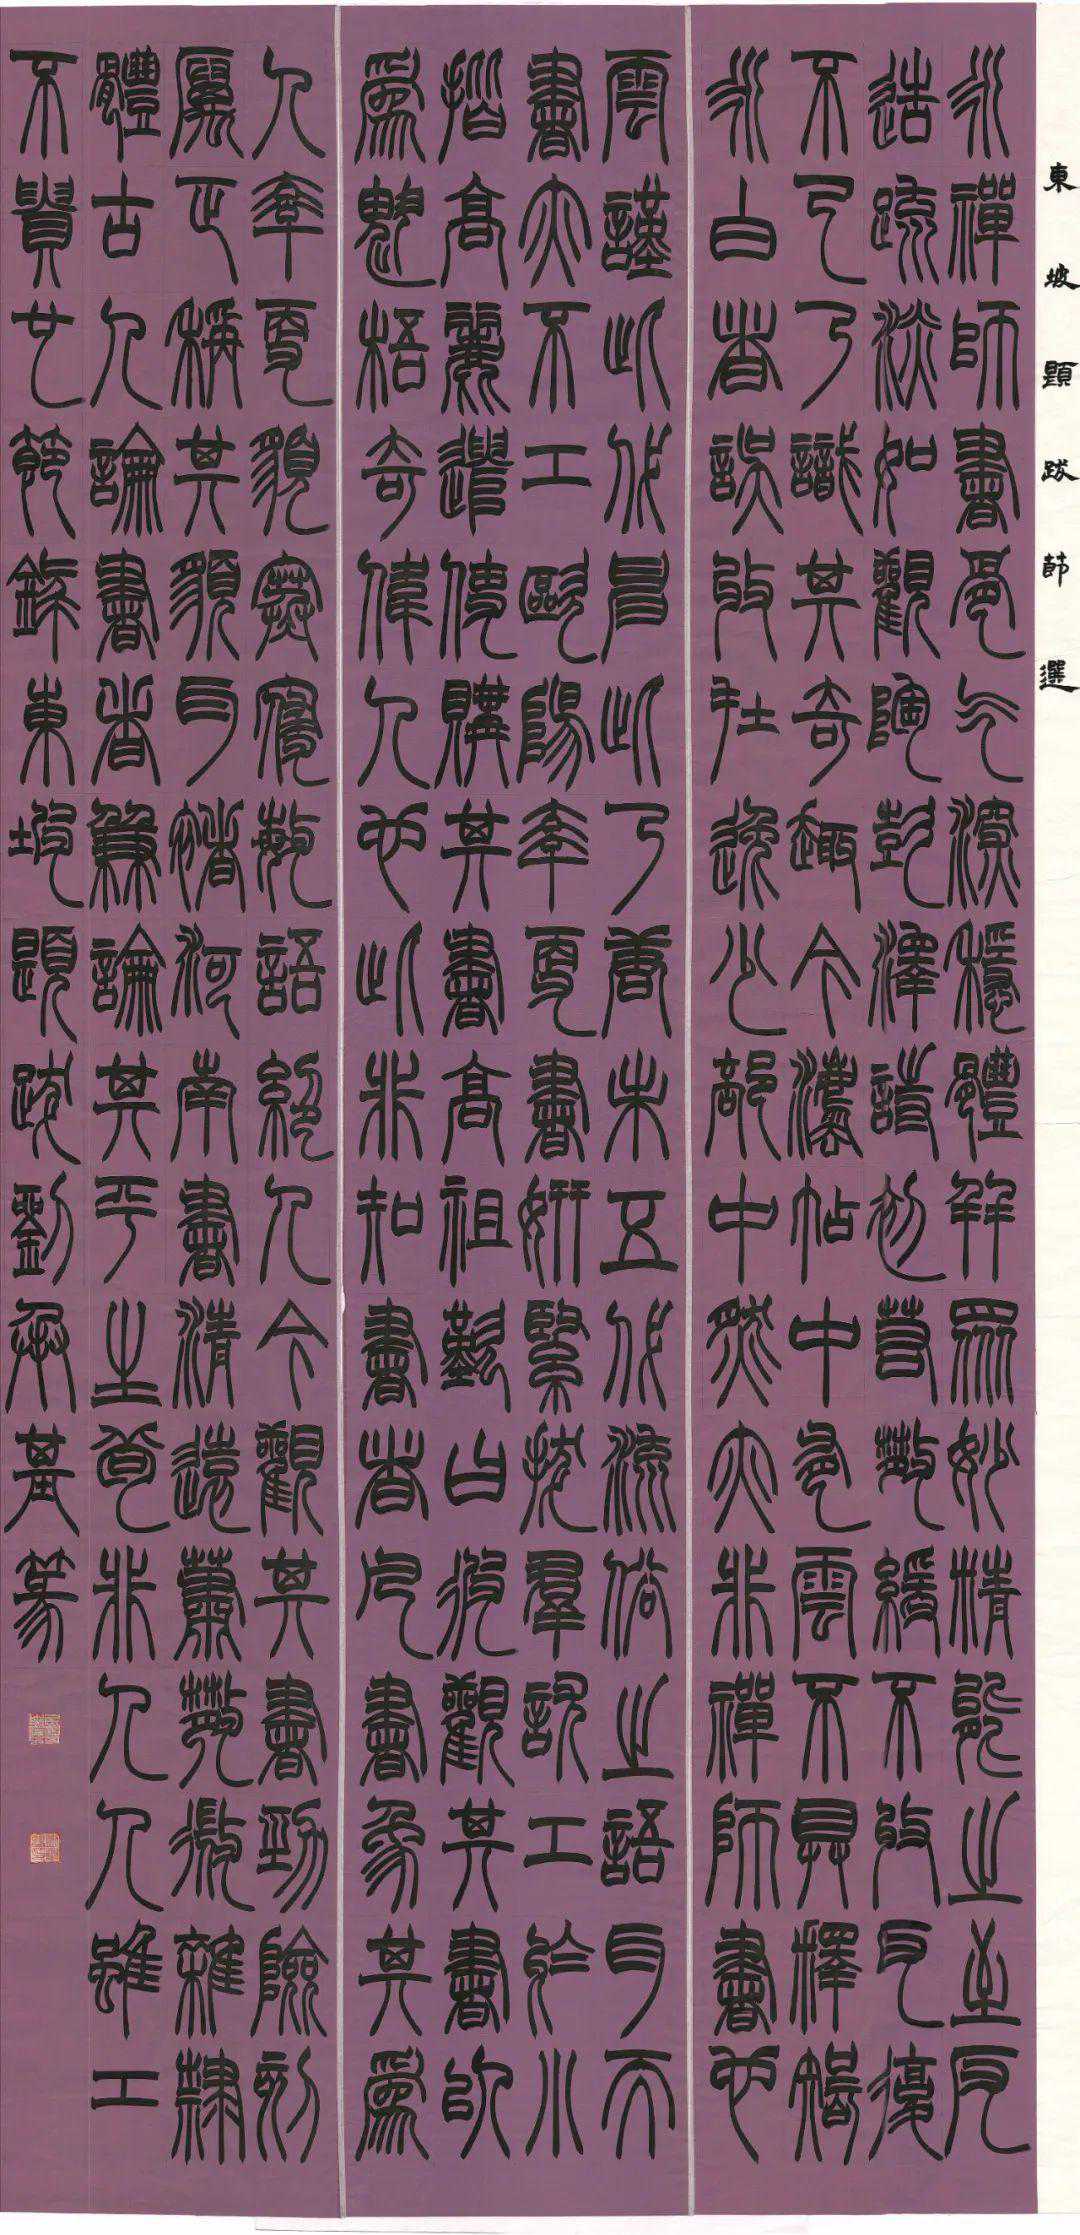 東坡題跋節選
永禪師書骨气深穩體兼眾妙精能之至反
造疏淡如觀陶彭澤詩初若散緩不收反復
不已乃識其奇趣今法帖中有雲不具釋智
永白者誤收在逸少部中然亦非禪師書也
雲謹此代申此乃唐末五代流俗之語耳而
書亦不工歐陽率更書妍緊拔群尤工於小
楷高麗遣使購其書高祖歎曰彼觀其書以
為魁梧奇偉人也此非知書者凡書象其為
人率更貌寒寢敏語絕人今觀其書勁險刻
厲正稱其貌耳褚河南書清遠蕭散微雜隸
體古人論書者兼論其平生苟非人人雖工
不貴也節錄東坡題跋劉承基篆